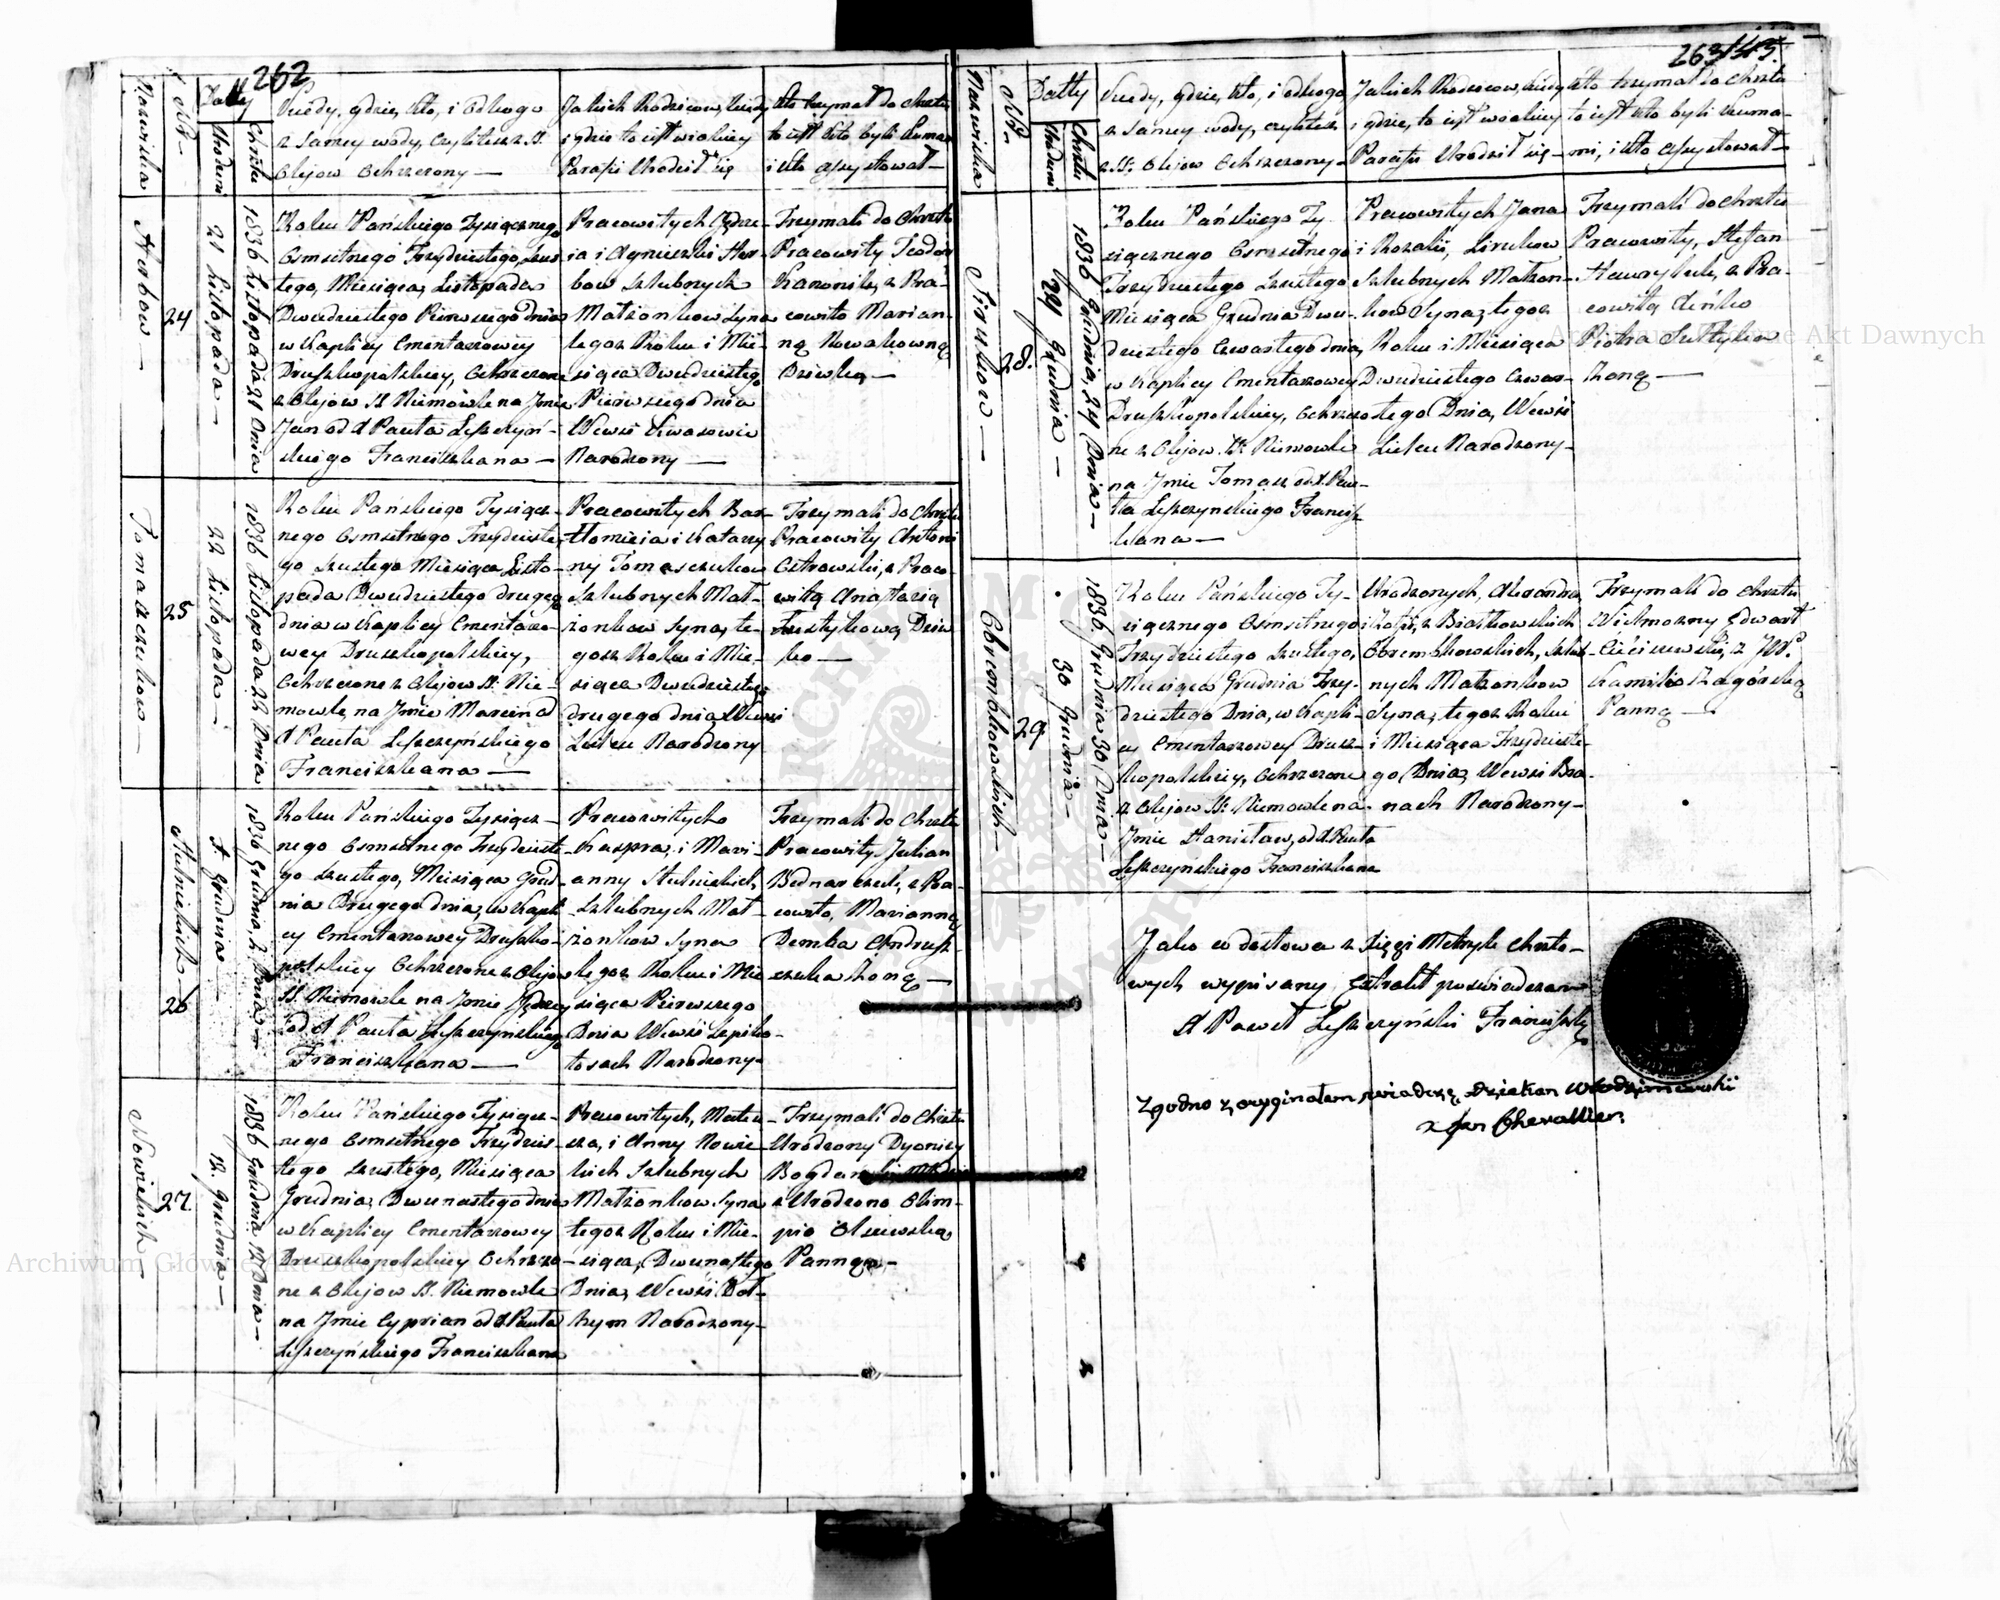 262
Nazwiska
Nr.
Datty
Urodzenia
Chrztu
Kiedy, gdzie, kto, i od kogo
z Samey wody, czyli też z SS.
Olejow Ochrzczony —
Jakich Rodzicow, kiedy
i gdzie to iest w iakiey
Parafii Urodził się
Kto trzymał do Chrztu
to iest kto byli Kumami
i kto assystował —
24
21 Listopada —
1836 Listopada 21 Dnia
Roku Pańskiego Tysiącznego
Osmsetnego Trzydziestego, szus-
tego, Miesiąca, Listopada
Dwudziestego Pierwszego dnia
w Kaplicy Cmentarzowey
Druszkopolskiey, Ochrzczone
z Olejow SS. Niemowle na Jmie
Jan od X Pawła Leszczyń-
skiego Franciszkana —
Pracowitych Jędrze-
ia i Agnieszki
bow Szlubnych
Małżonkow Syna
tegoż Roku i Mie-
siąca Dwudziestego
Pierwszego dnia
Wewsi Kwasowie
Narodzony —
Trzymali do Chrztu
Pracowity Teodor
z Pra-
cowito Marian-
ną Nowakowną
Dziewką —
Tomaszczukow —
25
22 Listopada —
1836 Listopada 22 Dnia
Roku Pańskiego Tysiącz-
nego Osmsetnego Trzydzieste-
go szustego Miesiąca Listo-
pada Dwudziestego drugiego
dnia w Kaplicy Cmentarzo-
wey Druszkopolskiey,
Ochrzczone z Olejow SS. Nie-
mowle, na Jmie Marcin od
X Pawła Leszczyńskiego
Franciszkana —
Pracowitych Bar-
tłomieia i Katarzy-
ny Tomaszczukow
Szlubnych Mał-
żonkow Syna, te-
goż Roku i Mie-
siąca Dwudziestego
drugiego dnia Wewsi
Lisku Narodzony
Trzymali do Chrztu
Pracowity Antoni
Ostrowski, z Praco-
witą Anastazią
Dziew-
ko —
26
1836 Grudnia, 2, Dnia —
Roku Pańskiego Tysiącz-
nego Osmsetnego Trzydzieste-
go szustego, Miesiąca Grud-
nia Drugiego dnia, w Kapli-
cy Cmentarzowey Druszko-
polskiey Ochrzczone z Olejow
SS. Niemowle na Jmie Jędrzey
od X Pawła Leszczyńskiego
Franciszkana —
Pracowitych
Kaspra, i Mari-
anny
Szlubnych Mał-
żonkow Syna
tegoż Roku i Mie-
siąca Pierwszego
Dnia Wewsi Szpiko-
łosach Narodzony
Trzymali do Chrztu
Pracowity Julian
Bednarczuk, z Pra-
cowito, Marianną
Demka Andrusz-
czuka Żoną —
Nowickich —
27
12. Grudnia —
1836 Grudnia 12 Dnia —
Roku Pańskiego Tysiącz-
nego Osmsetnego Trzydzies-
tego szustego, Miesiąca
Grudnia, Dwunastego dnia
w Kaplicy Cmentarzowey
Druszkopolskiey Ochrzczo-
ne z Olejow SS. Niemowle
na Jmie Cyprian od X Pawła
Leszczyńskiego Franciszkana
Pracowitych, Mateu-
sza, i Anny Nowic-
kich Szlubnych
Małżonkow Syna
tegoż Roku i Mie-
siąca, Dwunastego
Dnia, Wewsi
Narodzony —
Trzymali do Chrztu
Urodzony Dyonizy
z Urodzono Olim-
pio Olszewską
Panną —
263
Nazwiska
Nr.
Datty
Urodzenia
Chrztu
Kiedy, gdzie, kto, i od kogo
z Samey wody, czyli też
z SS. Olejow Ochrzczony —
Jakich Rodzicow, kiedy
i gdzie, to iest w iakiey
Parafii Urodził się —
Kto trzymał do Chrztu
to iest kto byli Kuma-
mi, i kto assystował —
28.
24 Grudnia —
1836 Grudnia, 24 Dnia —
Roku Pańskiego Ty-
siącznego Osmsetnego
Trzydziestego Szustego
Miesiąca Grudnia Dwu-
dziestego Czwartego dnia,
w Kaplicy Cmentarzowey
Druszkopolskiey, Ochrzczo-
ne z Olejow SS. Niemowle
na Jmie Tomasz od X. Paw-
ła Leszczyńskiego Francisz-
kana —
Pracowitych Jana
i Rozalii,
Szlubnych Małżon-
kow Syna, tegoż
Roku i Miesiąca
Dwudziestego Czwar-
tego Dnia, Wewsi
Lisku Narodzony —
Trzymali do Chrztu
Pracowity, Stefan
Hawryluk, z Pra-
cowitą
Piotra
Żoną —
29
30 Grudnia —
1836. Grudnia 30, Dnia —
Roku Pańskiego Ty-
siącznego Osmsetnego
Trzydziestego szustego,
Miesiąca Grudnia Trzy-
dziestego Dnia, w Kapli-
cy Cmentarzowey Drusz-
kopolskiey, Ochrzczone
z Olejow SS. Niemowle na
Jmie Stanisław, od X. Pawła
Leszczyńskiego Franciszkana
Urodzonych, Alexandra,
i Zofii, z Białkowskich
Szlub-
nych Małżonkow
Syna, tegoż Roku
i Miesiąca Trzydzieste-
go Dnia, Wewsi Bra-
nach Narodzony —
Trzymali do Chrztu
Wielmożny Edwart
Cieciszewski, z JW.
Kamilią Zagórską
Panną —
Jako co do słowa z Xięgi Metryk Chrzto-
wych wypisany, Extrakt poswiadczam
X Paweł Leszczyński Franciszk
Zgodno z oryginałem swiadczę, Dziekan Włodzimirski
X Jan Chevallier.
Archiwum Główne Akt Dawnych
Archiwum Główne Akt Dawnych